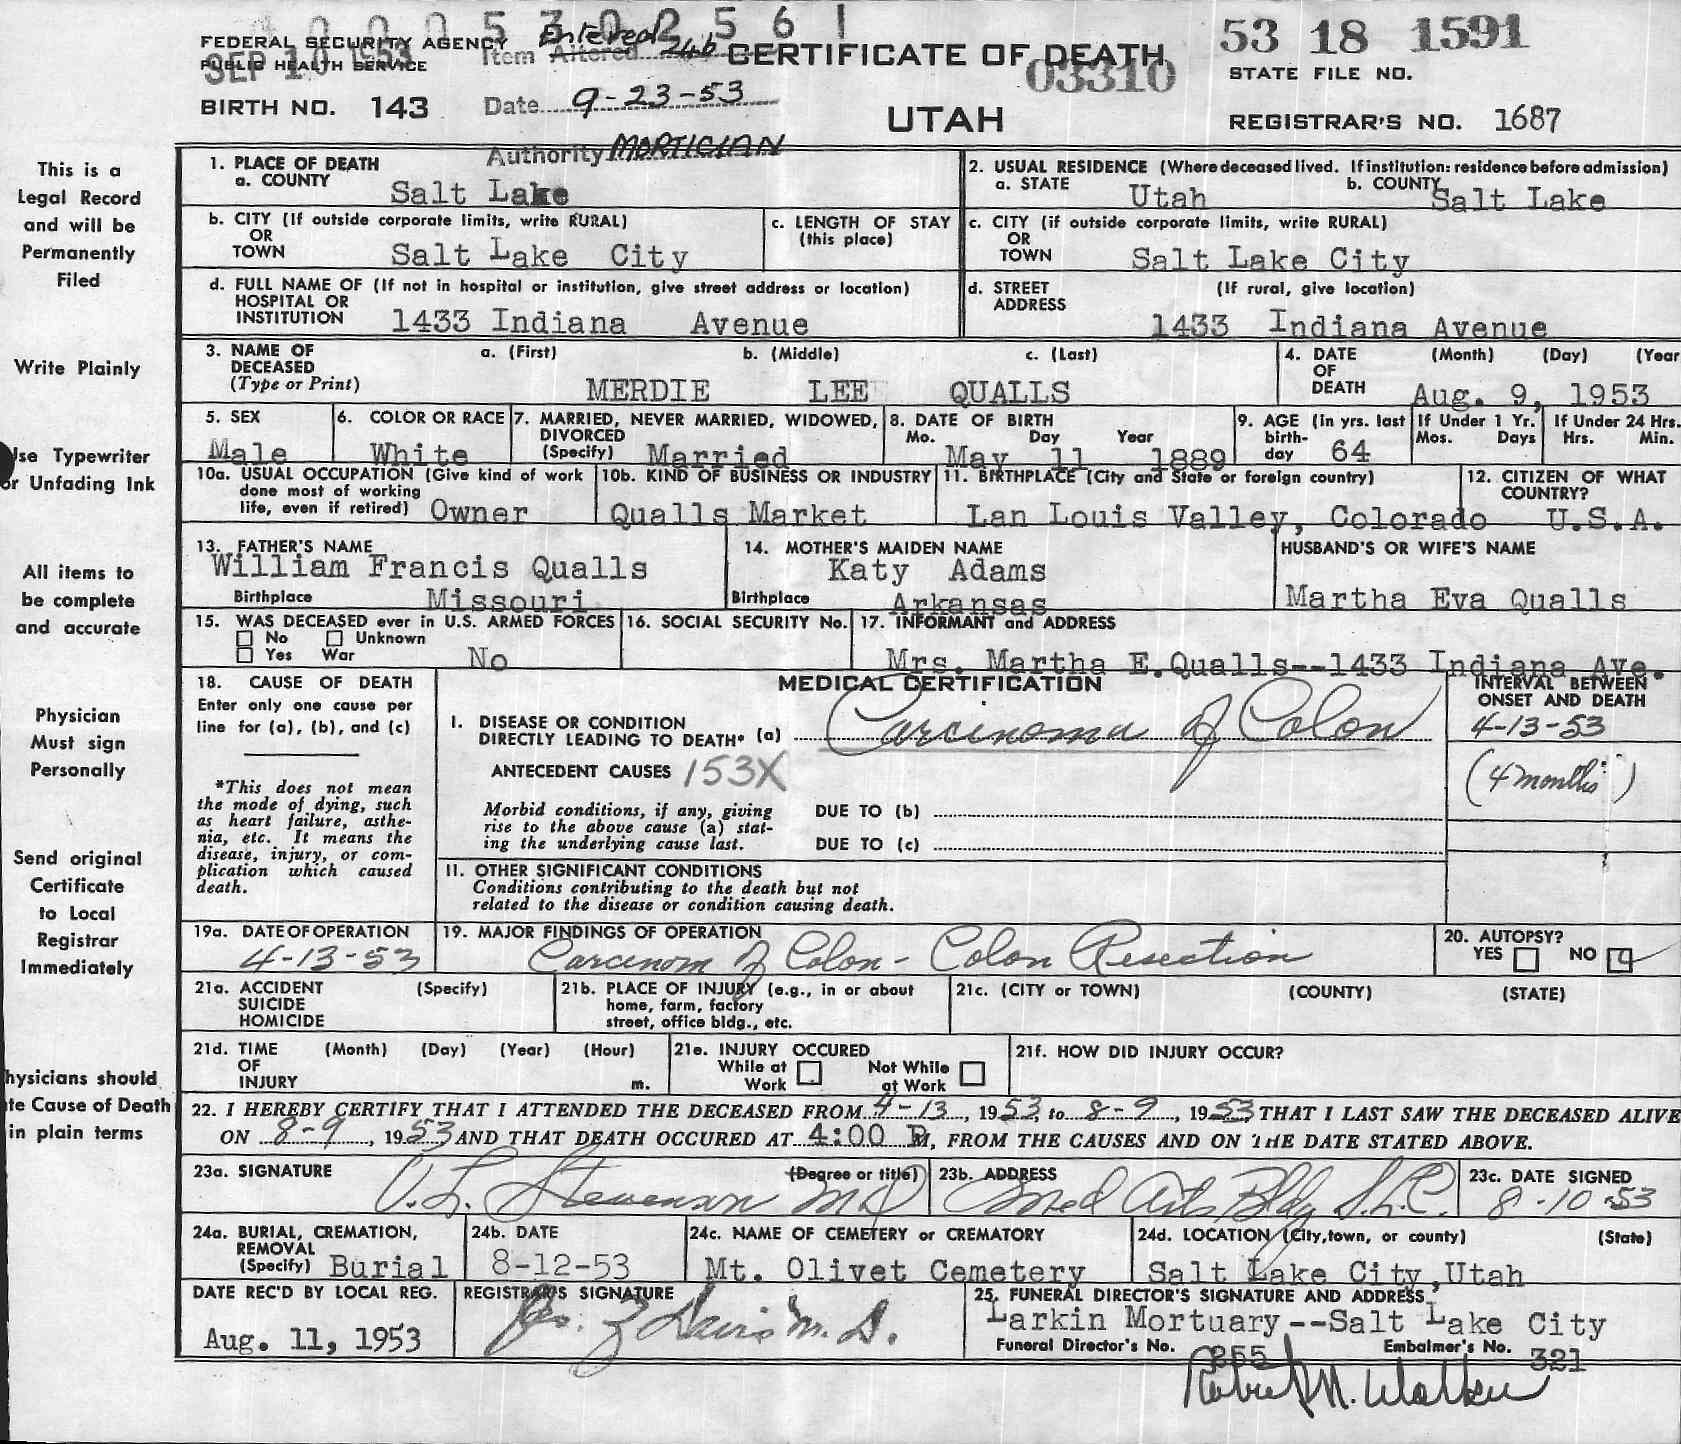 10005302561
FEDERAL SECURITY AGENCY
PUBLIC HEALTH SERVICE
SEP 10 1953
Entered
Item Altered 24b
CERTIFICATE OF DEATH
03310
53 18 1591
STATE FILE NO.
BIRTH NO. 143
Date 9-23-53
UTAH
REGISTRAR'S NO. 1687
Authority MORTICIAN
This is a
Legal Record
and will be
Permanently
Filed
Write Plainly
Use Typewriter
or Unfading Ink
All items to
be complete
and accurate
Physician
Must sign
Personally
Send original
Certificate
to Local
Registrar
Immediately
hysicians should
te Cause of Death
in plain terms
1. PLACE OF DEATH
a. COUNTY Salt Lake
2. USUAL RESIDENCE (Where deceased lived. If institution: residence before admission)
a. STATE Utah b. COUNTY Salt Lake
b. CITY (If outside corporate limits, write RURAL)
OR
TOWN Salt Lake City
c. LENGTH OF STAY
(this place)
c. CITY (if outside corporate limits, write RURAL)
OR
TOWN Salt Lake City
d. FULL NAME OF (If not in hospital or institution, give street address or location)
HOSPITAL OR
INSTITUTION 1433 Indiana Avenue
d. STREET (If rural, give location)
ADDRESS
1433 Indiana Avenue
3. NAME OF a. (First) b. (Middle) c. (Last)
DECEASED
(Type or Print) MERDIE LEE QUALLS
4. DATE (Month) (Day) (Year
OF
DEATH Aug. 9, 1953
5. SEX
Male
6. COLOR OR RACE
White
7. MARRIED, NEVER MARRIED, WIDOWED,
DIVORCED
(Specify) Married
8. DATE OF BIRTH
Mo. Day Year
May 11 1889
9. AGE (in yrs. last
birth-
day 64
If Under 1 Yr.
Mos. Days
If Under 24 Hrs.
Hrs. Min.
10a. USUAL OCCUPATION (Give kind of work
done most of working
life, even if retired) Owner
10b. KIND OF BUSINESS OR INDUSTRY
Qualls Market
11. BIRTHPLACE (City and State or foreign country)
Lan Louis Valley, Colorado
12. CITIZEN OF WHAT
COUNTRY?
U.S.A.
13. FATHER'S NAME
William Francis Qualls
Birthplace Missouri
14. MOTHER'S MAIDEN NAME
Katy Adams
Birthplace Arkansas
HUSBAND'S OR WIFE'S NAME
Martha Eva Qualls
15. WAS DECEASED ever in U.S. ARMED FORCES
No Unknown
Yes War No
16. SOCIAL SECURITY No.
17. INFORMANT and ADDRESS
Mrs. Martha E.Qualls--1433 Indiana Ave.
18. CAUSE OF DEATH
Enter only one cause per
line for (a), (b), and (c)
*This does not mean
the mode of dying, such
as heart failure, asthe-
nia, etc. It means the
disease, injury, or com-
plication which caused
death.
MEDICAL CERTIFICATION
I. DISEASE OR CONDITION
DIRECTLY LEADING TO DEATH* (a) Carcinoma of Colon
ANTECEDENT CAUSES 153X
Morbid conditions, if any, giving
rise to the above cause (a) stat-
ing the underlying cause last.
DUE TO (b)
DUE TO (c)
II. OTHER SIGNIFICANT CONDITIONS
Conditions contributing to the death but not
related to the disease or condition causing death.
INTERVAL BETWEEN
ONSET AND DEATH
4-13-53
(4 months)
19a. DATE OF OPERATION
4-13-53
19. MAJOR FINDINGS OF OPERATION
Carcinom of Colon - Colon Resection
20. AUTOPSY?
YES NO
21a. ACCIDENT (Specify)
SUICIDE
HOMICIDE
21b. PLACE OF INJURY (e.g., in or about
home, farm, factory
street, office bldg., etc.
21c. (CITY or TOWN) (COUNTY) (STATE)
21d. TIME (Month) (Day) (Year) (Hour)
OF
INJURY m.
21e. INJURY OCCURED
While at Work
Not While at Work
21f. HOW DID INJURY OCCUR?
22. I HEREBY CERTIFY THAT I ATTENDED THE DECEASED FROM 4-13, 1953, to 8-9, 1953, THAT I LAST SAW THE DECEASED ALIVE
ON 8-9, 1953 AND THAT DEATH OCCURED AT 4:00 P M, FROM THE CAUSES AND ON THE DATE STATED ABOVE.
23a. SIGNATURE (Degree or title)
V.L. Stevenson MD
23b. ADDRESS
Med Arts Bldg S.L.C.
23c. DATE SIGNED
8-10-53
24a. BURIAL, CREMATION,
REMOVAL
(Specify) Burial
24b. DATE
8-12-53
24c. NAME OF CEMETERY or CREMATORY
Mt. Olivet Cemetery
24d. LOCATION (City, town, or county) (State)
Salt Lake City, Utah
DATE REC'D BY LOCAL REG.
Aug. 11, 1953
REGISTRAR'S SIGNATURE
Davis M.D.
25. FUNERAL DIRECTOR'S SIGNATURE AND ADDRESS
Larkin Mortuary--Salt Lake City
Funeral Director's No. 255 Embalmer's No. 321
Robert N. Walker